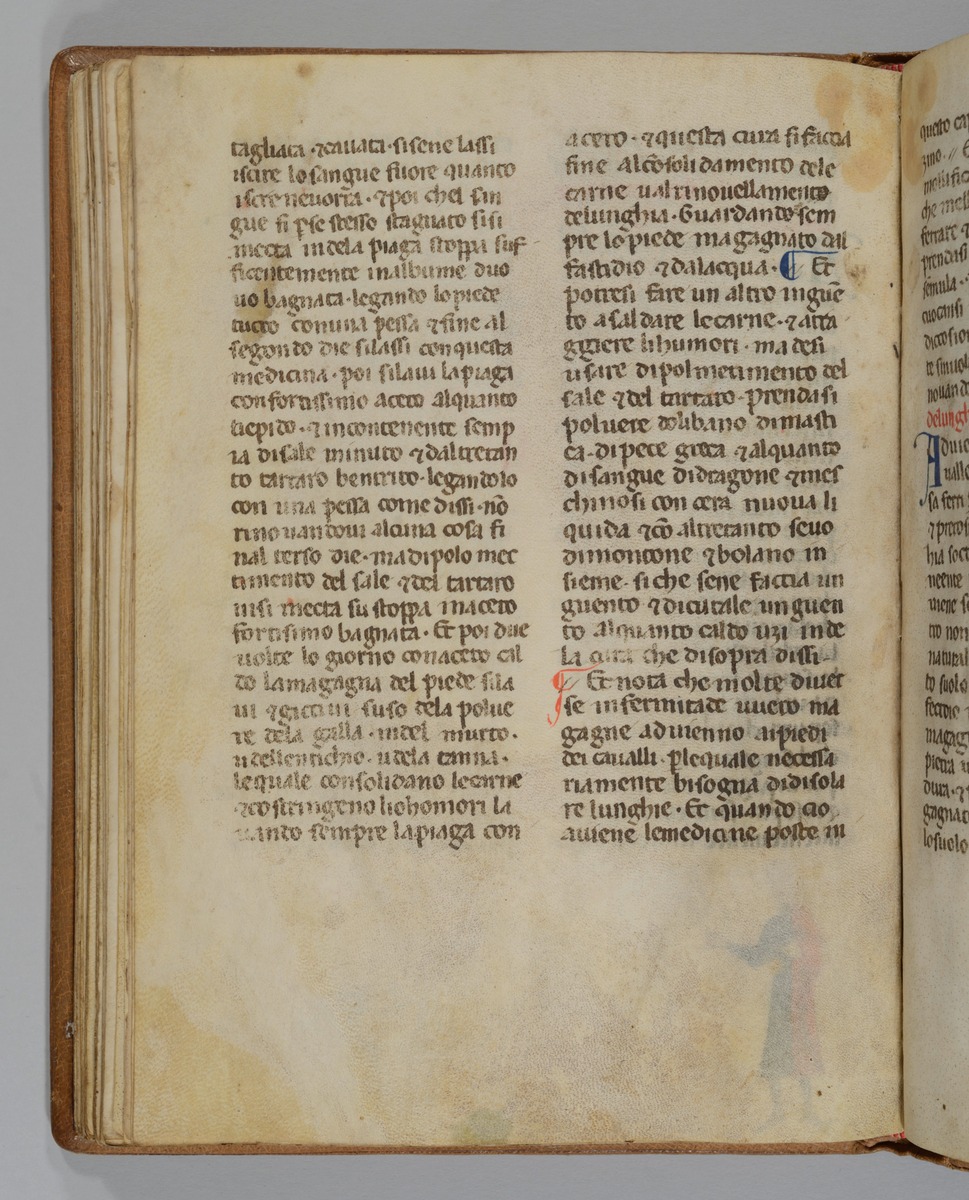 tagliata · ⁊cauata · si sene lassi
iscire lo sangue fuore quanto
iscire neuorra · ⁊poi chel san
gue si p se stesso stagnato si si
metta in dela piaga stoppa suf
ficentemente in albume duo
uo bagnata · legando lo piede
tucto con una pessa ⁊ fine al
segondo die si lassi con questa
medicina · poi si laui la piaga
con fortissimo aceto alquanto
tiepido · ⁊incontenente semp
ia di sale minuto ⁊ daltretan
to tartaro ben trito · legandolo
con una pessa come dissi · nō
rinouandoui alcuna cosa fi
nal terso die · ma di polo met
timento del sale ⁊ del tartaro
ui si metta su stoppa in aceto
fortissimo bagnata · Et poi due
uolte lo giorno con aceto cal
do la magagna del piede si la
ui ⁊ gictiui suso dela polue
re dela galla · u del murto ·
u dellentichio · u dela tanna ·
le quale consolidano le carne
⁊costringeno li homori la
uando sempre la piaga con
aceto · ⁊questa cura si faccia
fine al cōsolidamento dele
carne u al rinouellamento
delunghia · Guardando sem
pre lo piede magagnato dal
fastidio ⁊ dalacqua · ¶ Et
potresi fare un altro inguē
to a saldare le carne · ⁊ atta
ggiere li humori · ma desi
usare di polmetimento del
sale ⁊ del tartaro · prendasi
poluere dolibano di masti
ca · di pece greca ⁊ alquanto
di sangue di dragone ⁊ mes
chinosi con cera nuoua li
quida ⁊ cō altretanto seuo
di montone ⁊ bolano in
sieme · si che sene faccia un
guento ⁊ di cutale unguen
to alquanto caldo uzi inde
la cura che di sopra dissi ·
¶ Et nota che molte diuer
se infermitade uuero ma
gagne aduienno ai piedi
dei caualli · ple quale necessa
riamente bisogna di disola
re lunghie · Et quando cio
auiene le medicine poste in
questo
delungh